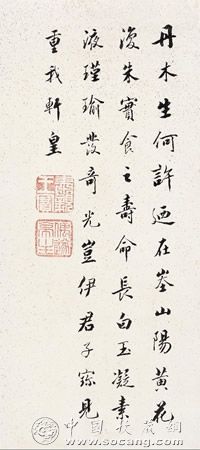 丹木生何許迺在峚山陽黃花
復朱實食之壽命長白玉凝素
液瑾瑜發奇光豈伊君子寶見
重我軒皇
www.socang.com